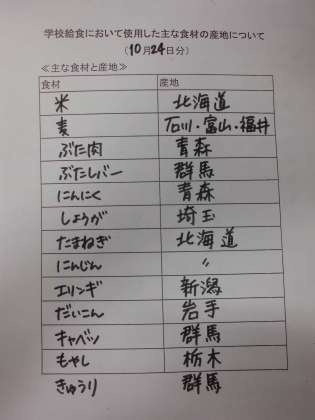 学校給食において使用した主な食材の産地について
(10月24日分)
≪主な食材と産地≫
食材 産地
米 北海道
麦 石川・富山・福井
ぶた肉 青森
ぶたレバー 群馬
にんにく 青森
しょうが 埼玉
たまねぎ 北海道
にんじん 〃
エリンギ 新潟
だいこん 岩手
キャベツ 群馬
もやし 栃木
きゅうり 群馬